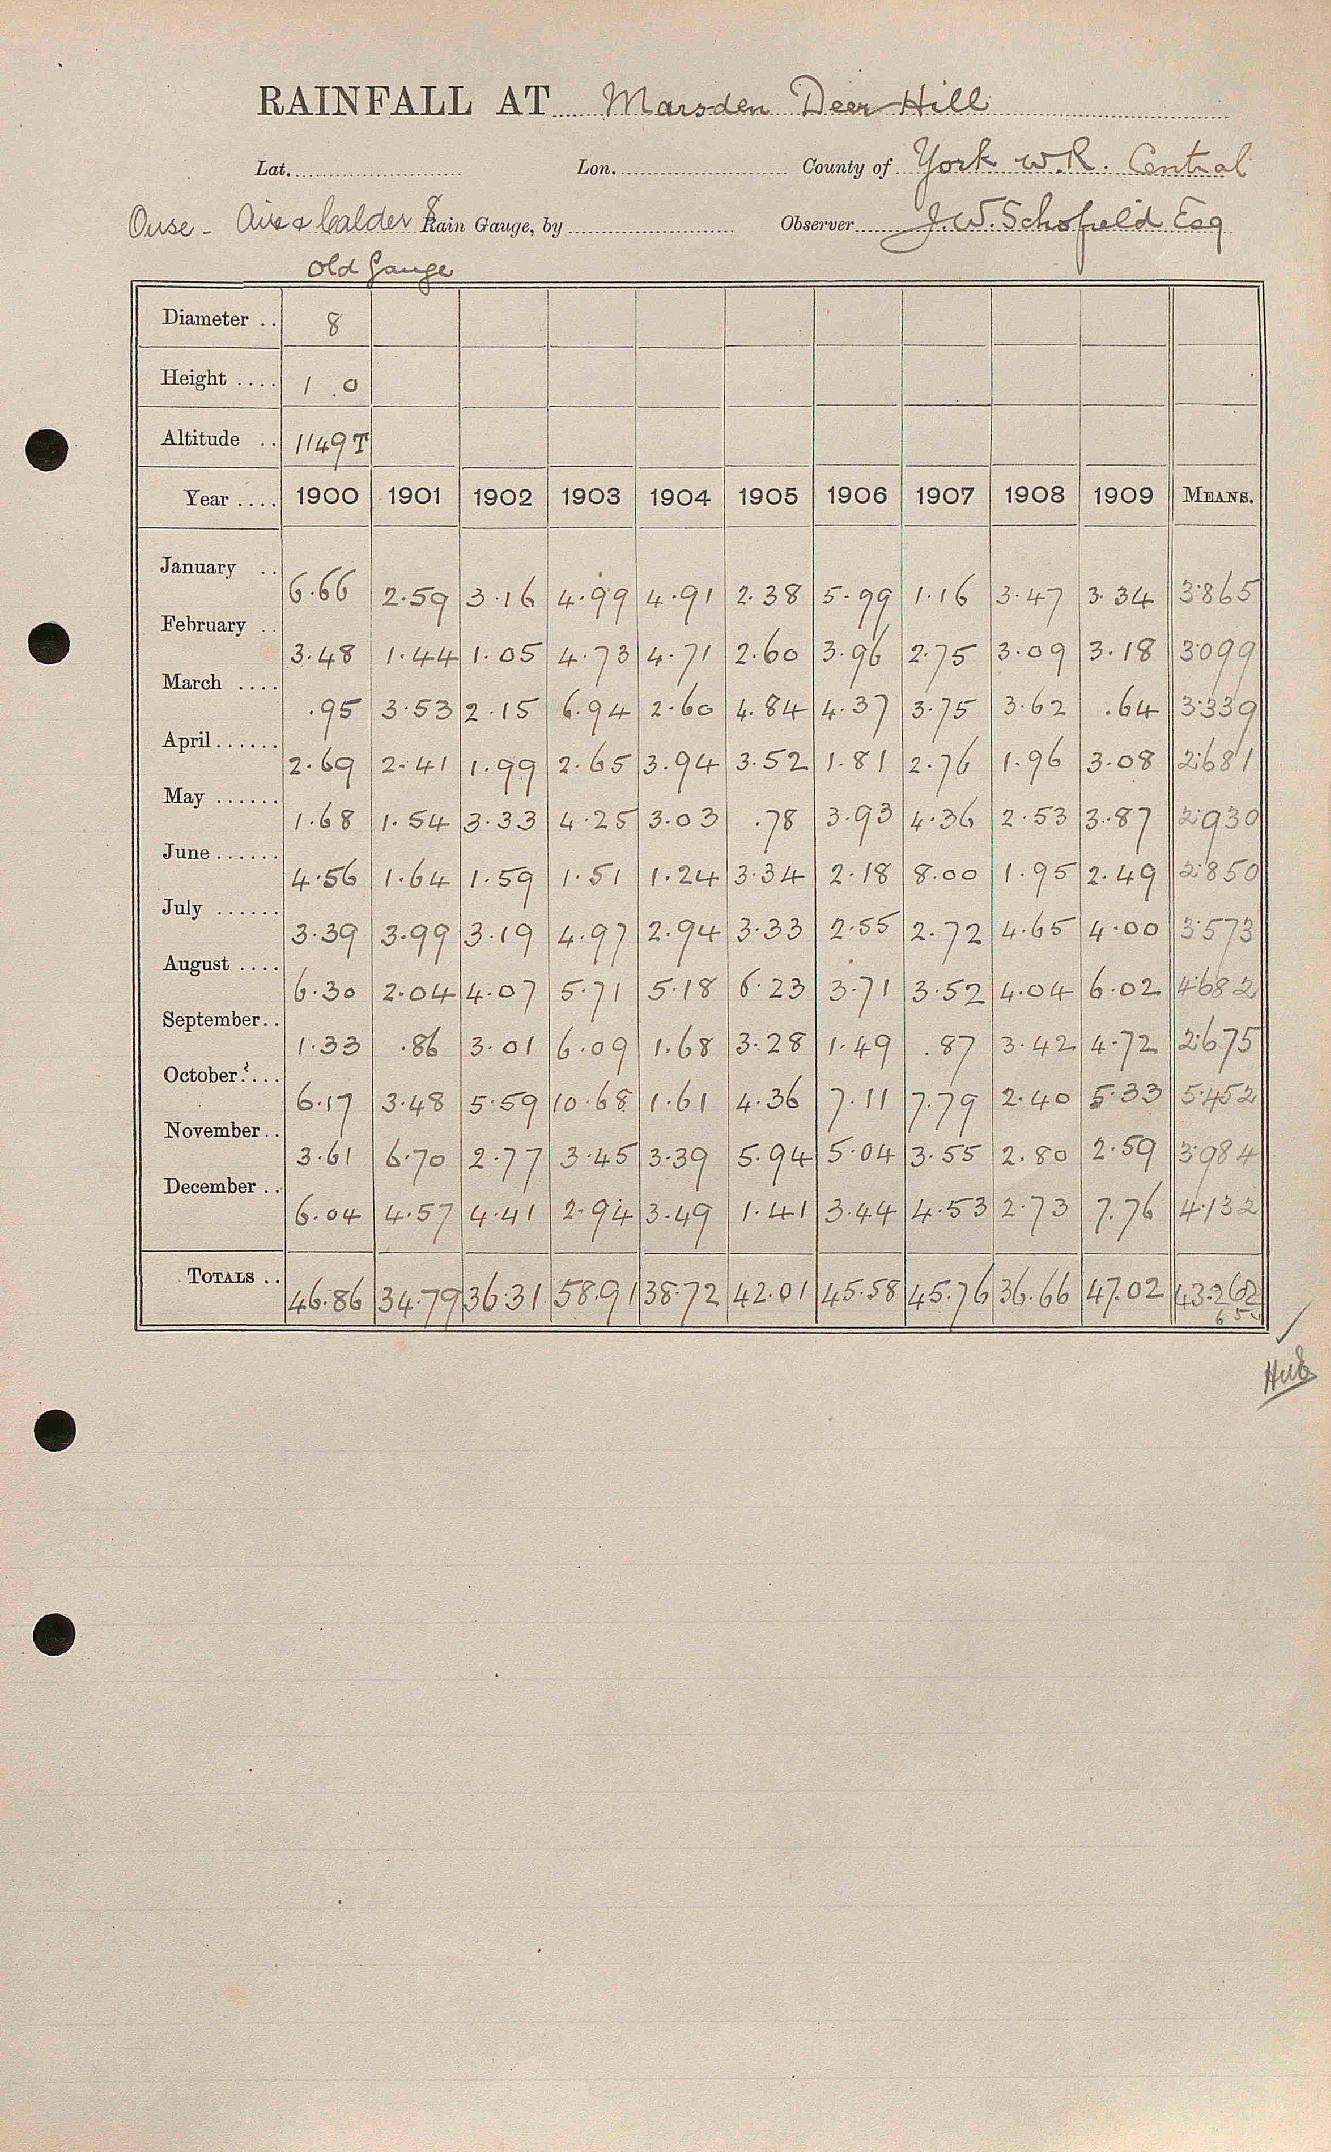 RAINFALL AT Marsden Deer Hill
Lat. Lon. County of York W.R. Central
Ouse - Aire & Calder 8 Rain Gauge, by Observer J.W. Schofield Esq
Old Gauge
Diameter .. 8
Height .... 1 . 0
Altitude .. 1149 T
Year .... 1900 1901 1902 1903 1904 1905 1906 1907 1908 1909 MEANS.
January .. 6.66 2.59 3.16 4.99 4.91 2.38 5.99 1.16 3.47 3.34 3.865
February .. 3.48 1.44 1.05 4.73 4.71 2.60 3.96 2.75 3.09 3.18 3.099
March .... .95 3.53 2.15 6.94 2.60 4.84 4.37 3.75 3.62 .64 3.339
April ...... 2.69 2.41 1.99 2.65 3.94 3.52 1.81 2.76 1.96 3.08 2.681
May ...... 1.68 1.54 3.33 4.25 3.03 .78 3.93 4.36 2.53 3.87 2.930
June ...... 4.56 1.64 1.59 1.51 1.24 3.34 2.18 8.00 1.95 2.49 2.850
July ...... 3.39 3.99 3.19 4.97 2.94 3.33 2.55 2.72 4.65 4.00 3.573
August .... 6.30 2.04 4.07 5.71 5.18 6.23 3.71 3.52 4.04 6.02 4.682
September.. 1.33 .86 3.01 6.09 1.68 3.28 1.49 .87 3.42 4.72 2.675
October.... 6.17 3.48 5.59 10.68 1.61 4.36 7.11 7.79 2.40 5.33 5.452
November.. 3.61 6.70 2.77 3.45 3.39 5.94 5.04 3.55 2.80 2.59 3.984
December .. 6.04 4.57 4.41 2.94 3.49 1.41 3.44 4.53 2.73 7.76 4.132
TOTALS .. 46.86 34.79 36.31 58.91 38.72 42.01 45.58 45.76 36.66 47.02 43.262